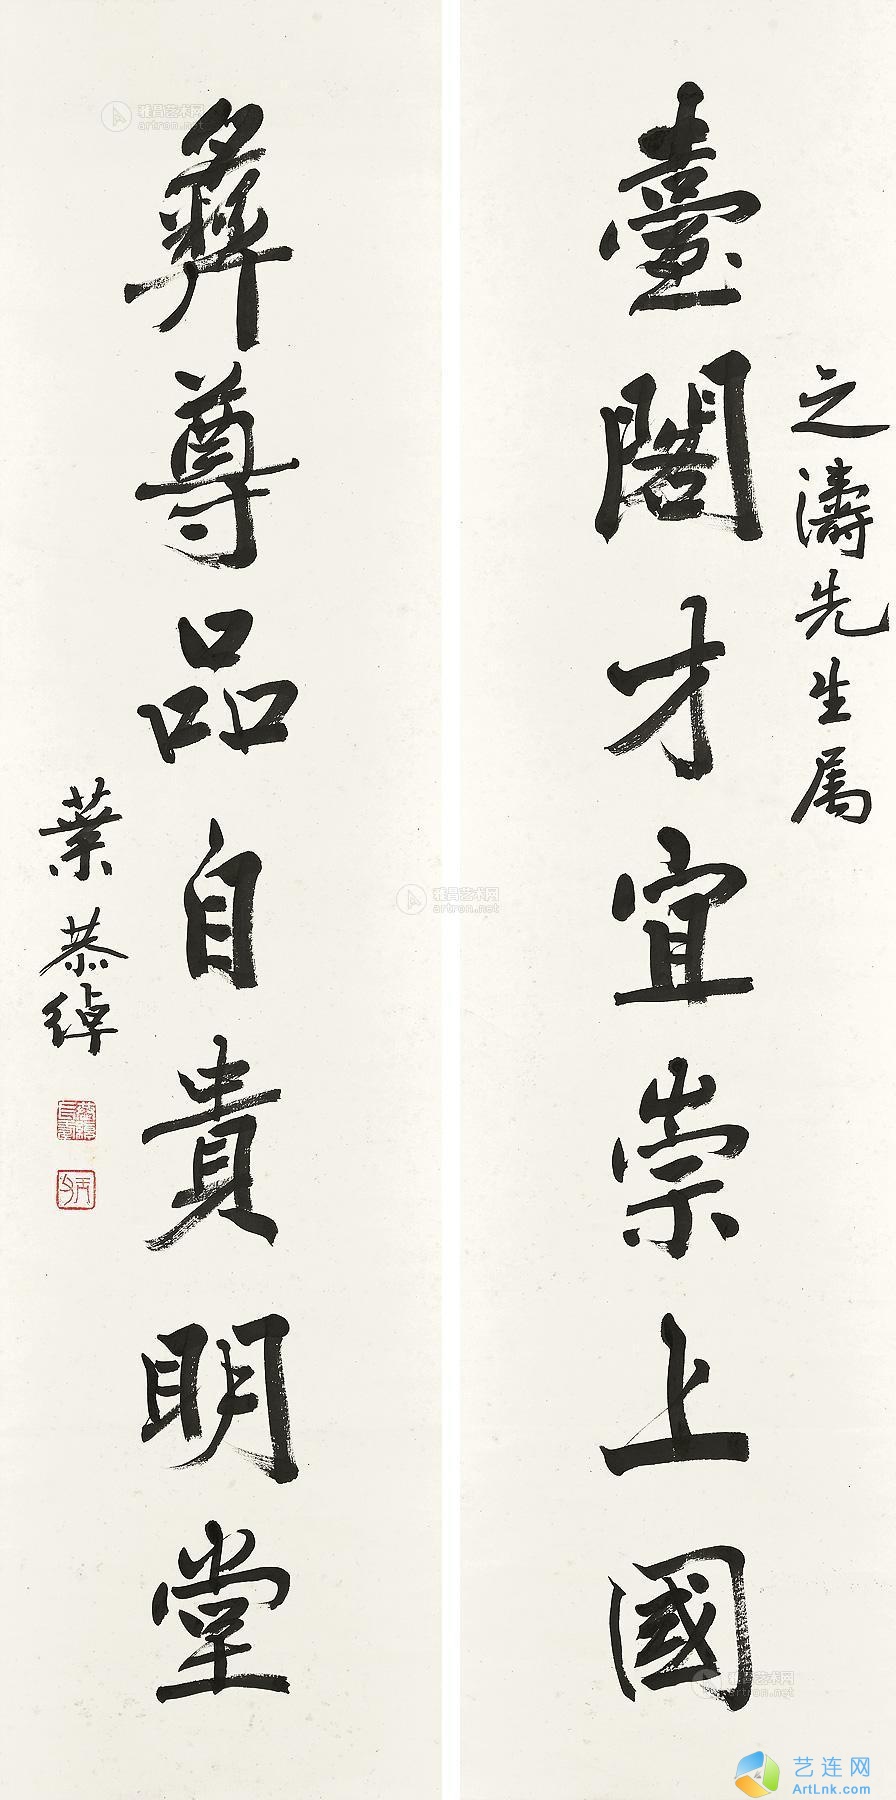 之濤先生属
臺閣才宜崇上國
彝尊品自貴明堂
葉恭綽
雅昌艺术网
artron.net
雅昌艺术网
artron.net
雅昌艺术网
artron.net
艺连网
ArtLnk.com